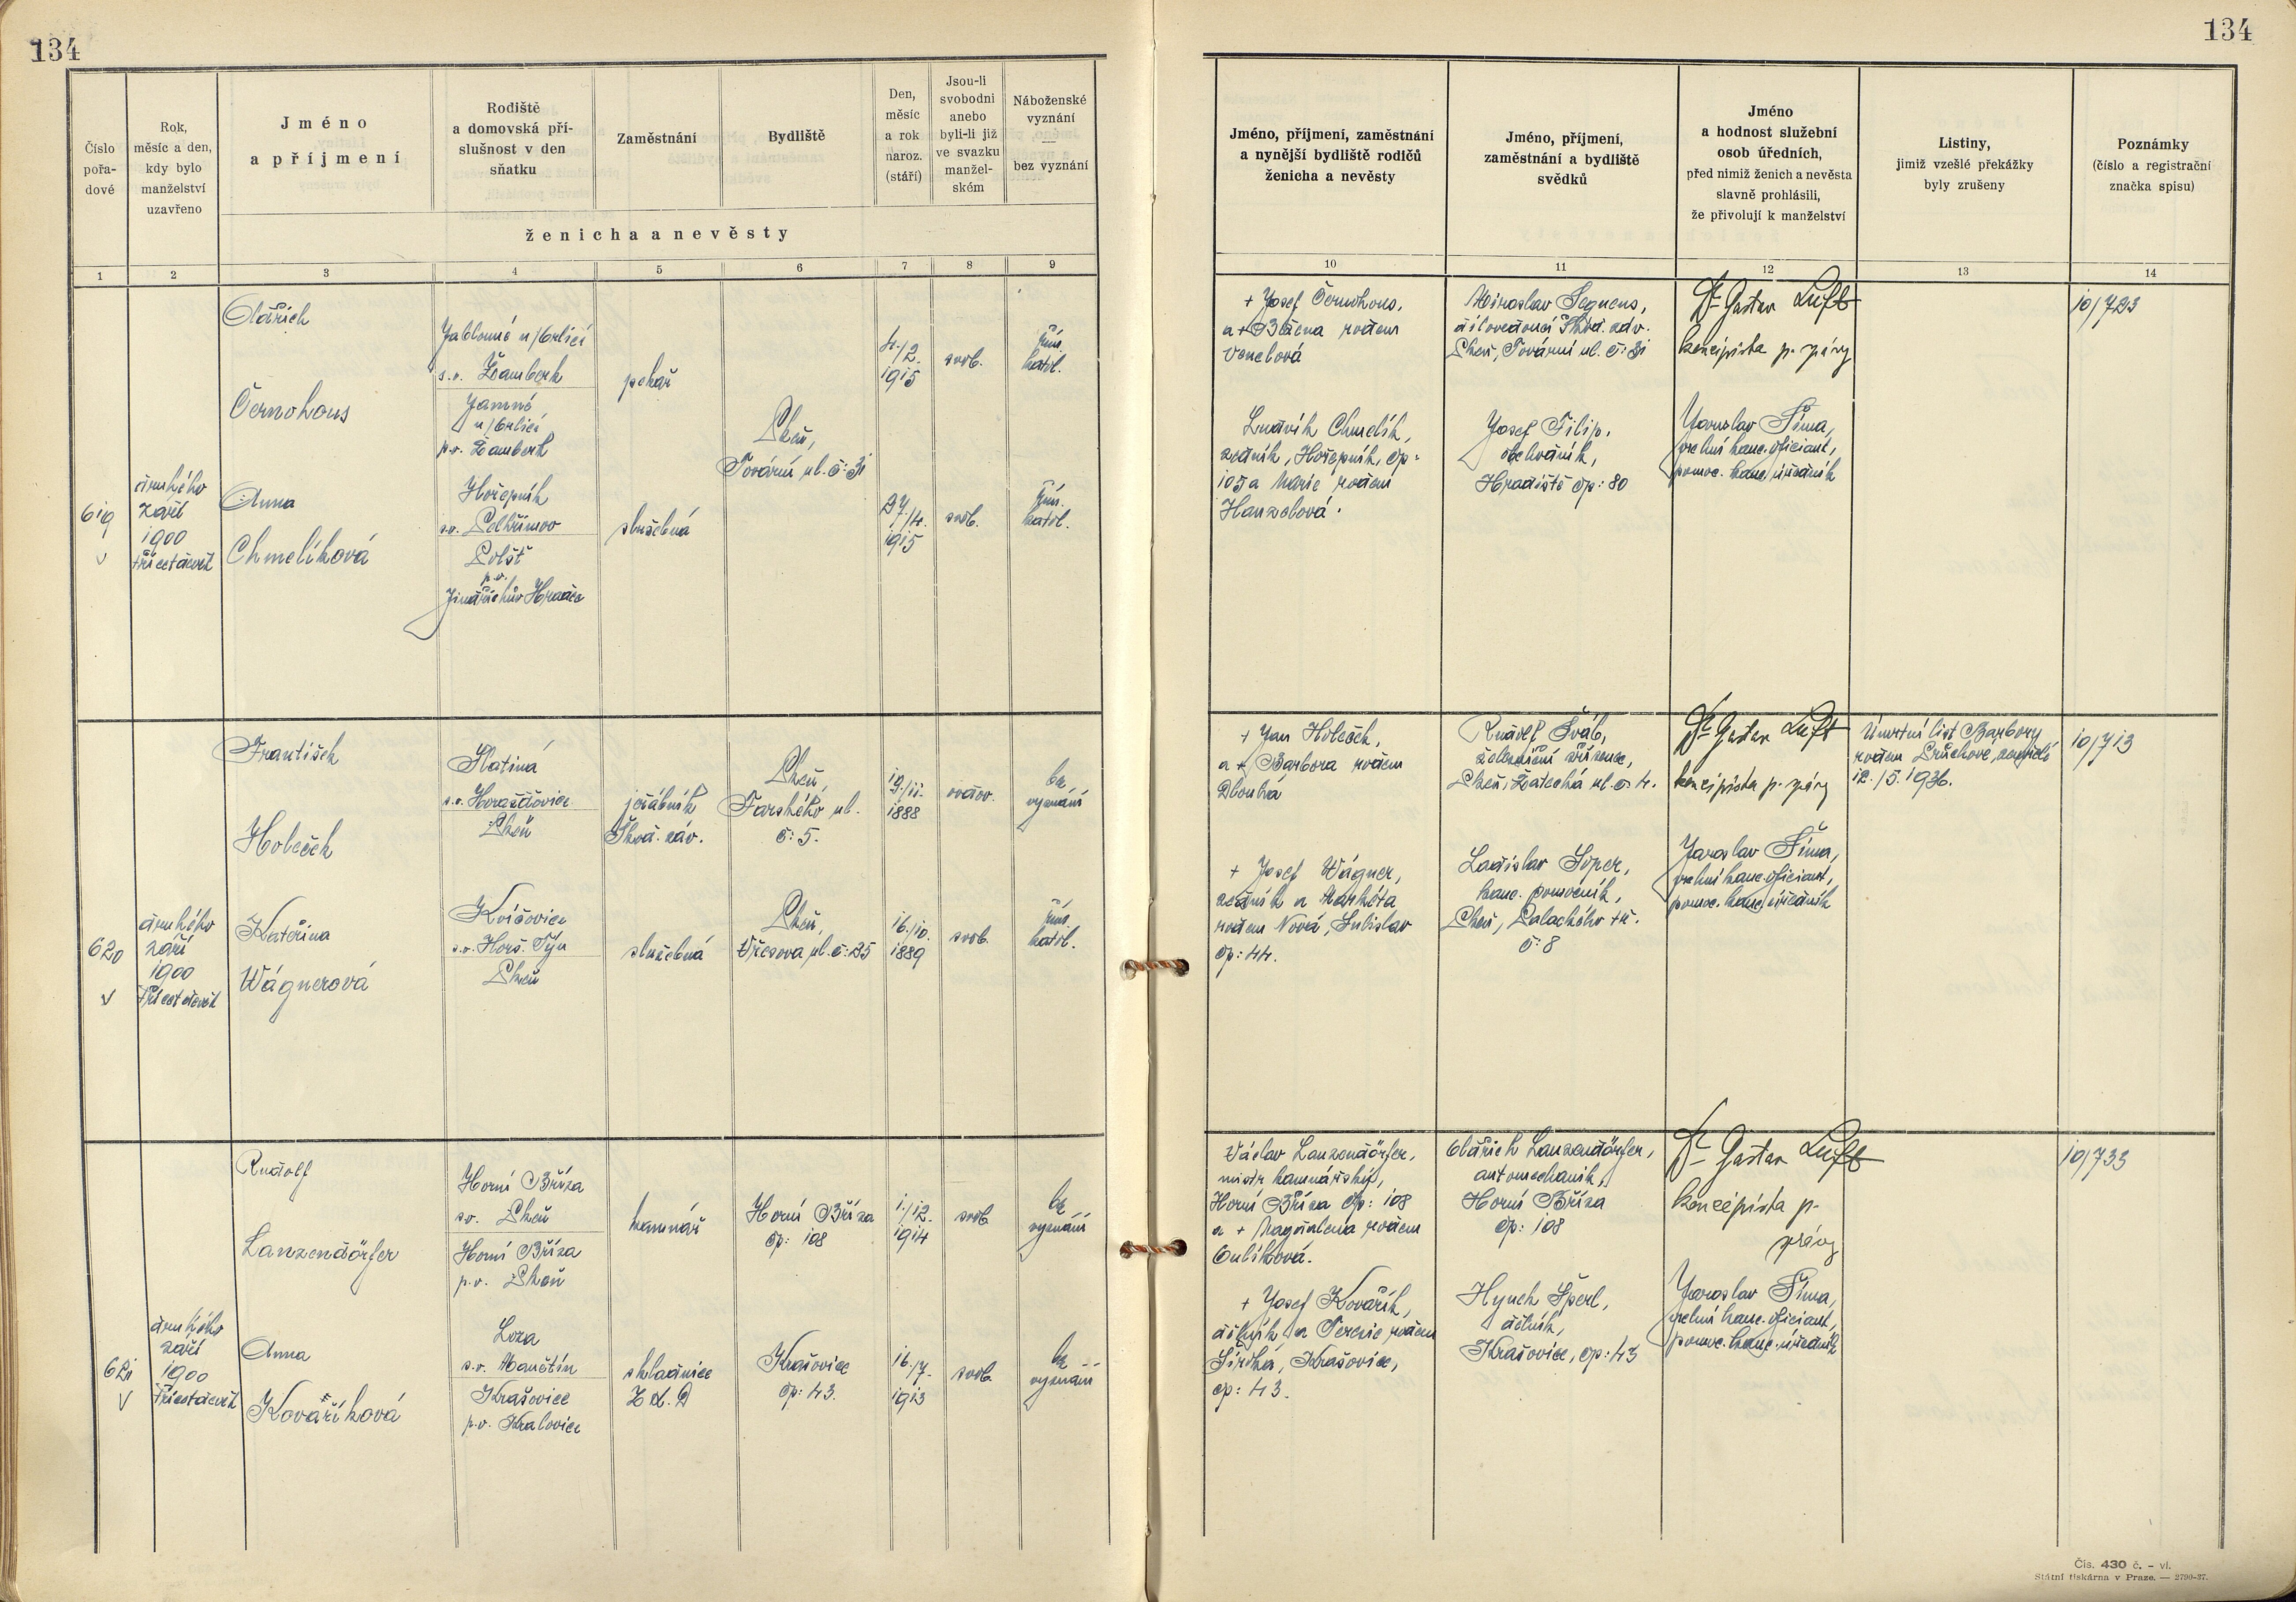 134
134
Číslo
pořa-
dové
Rok,
měsíc a den,
kdy bylo
manželství
uzavřeno
Jméno
a příjmení
Rodiště
a domovská pří-
slušnost v den
sňatku
Zaměstnání
Bydliště
Den,
měsíc
a rok
naroz.
(stáří)
Jsou-li
svobodni
anebo
byli-li již
ve svazku
manžel-
ském
Náboženské
vyznání
—
bez vyznání
ženicha a nevěsty
1 2 3 4 5 6 7 8 9
Jméno, příjmení, zaměstnání
a nynější bydliště rodičů
ženicha a nevěsty
Jméno, příjmení,
zaměstnání a bydliště
svědků
Jméno
a hodnost služební
osob úředních,
před nimiž ženich a nevěsta
slavně prohlásili,
že přivolují k manželství
Listiny,
jimiž vzešlé překážky
byly zrušeny
Poznámky
(číslo a registrační
značka spisu)
10 11 12 13 14
619
druhého
září
1900
třicetdevět
Oldřich
Černohous
Anna
Chmelíková
Jablonné n/Orlicí
s.o. Žamberk
Jamné
n/Orlicí
p.o. Žamberk
Hořepník
s.o. Pelhřimov
Polšť
p.o.
Jindřichův Hradec
pekař
služebná
Plzeň,
Tovární ul. č: 31
4./2.
1915
27./4.
1915
svob.
svob.
řím.
katol.
řím.
katol.
+ Josef Černohous,
a + Božena rodem
Ludvík Chmelík,
zedník, Hořepník, čp:
105 a Marie rodem
Hanzelová.
Miroslav Segnens,
dílovedoucí Škod. záv.
Plzeň, Tovární ul. č: 31
Josef Filip,
obchodník,
Hradiště čp: 80
Dr Gustav Luft
koncipista p. správy
Jaroslav Šíma,
vrchní kanc. oficiant,
pomoc. kanc. úředník
10/723
620
druhého
září
1900
třicetdevět
František
Holeček
Kateřina
Wágnerová
Slatina
s.o. Horažďovice
Plzeň
Kvíčovice
s.o. Horš. Týn
Plzeň
jeřábník
Škod. záv.
služebná
Plzeň,
Farského ul.
č: 5.
Plzeň,
Křesova ul. č: 25
19./11.
1888
16./10.
1889
vdov.
svob.
bez
vyznání
řím.
katol.
+ Jan Holeček,
a + Barbora rodem
Dlouhá
+ Josef Wágner,
zedník a Markéta
rodem Nová, Sulislav
čp: 44.
Rudolf Šváb,
železniční zřízenec,
Plzeň, Žatecká ul. č: 4.
Ladislav Soper,
kanc. pomocník,
Plzeň, Palackého tř.
č: 8
Dr Gustav Luft
koncipista p. správy
Jaroslav Šíma,
vrchní kanc. oficiant,
pomoc. kanc. úředník
Úmrtní list Barbory
rodem Průchové, zemřelé
12./5. 1936.
10/713
621
druhého
září
1900
třicetdevět
Rudolf
Lanzendörfer
Anna
Kovaříková
Horní Bříza
s.o. Plzeň
Horní Bříza
p.o. Plzeň
Loza
s.o. Manětín
Krašovice
p.o. Kralovice
kamnář
skladnice
Horní Bříza
čp: 108
Krašovice
čp: 43.
1./12.
1914
16./7.
1913
svob.
svob.
bez
vyznání
bez
vyznání
Václav Lanzendörfer,
mistr kamnářský,
Horní Bříza čp: 108
a + Magdalena rodem
Oulíková.
+ Josef Kovařík,
dělník a Terezie rodem
Široká, Krašovice,
čp: 43.
Oldřich Lanzendörfer,
automechanik,
Horní Bříza
čp: 108
Hynek Šperl,
dělník,
Krašovice, čp: 43
Dr Gustav Luft
koncipista p.
správy
Jaroslav Šíma,
vrchní kanc. oficiant,
pomoc. kanc. úředník
10/733
Čís. 430 č. – vl.
Státní tiskárna v Praze. — 2790-37.